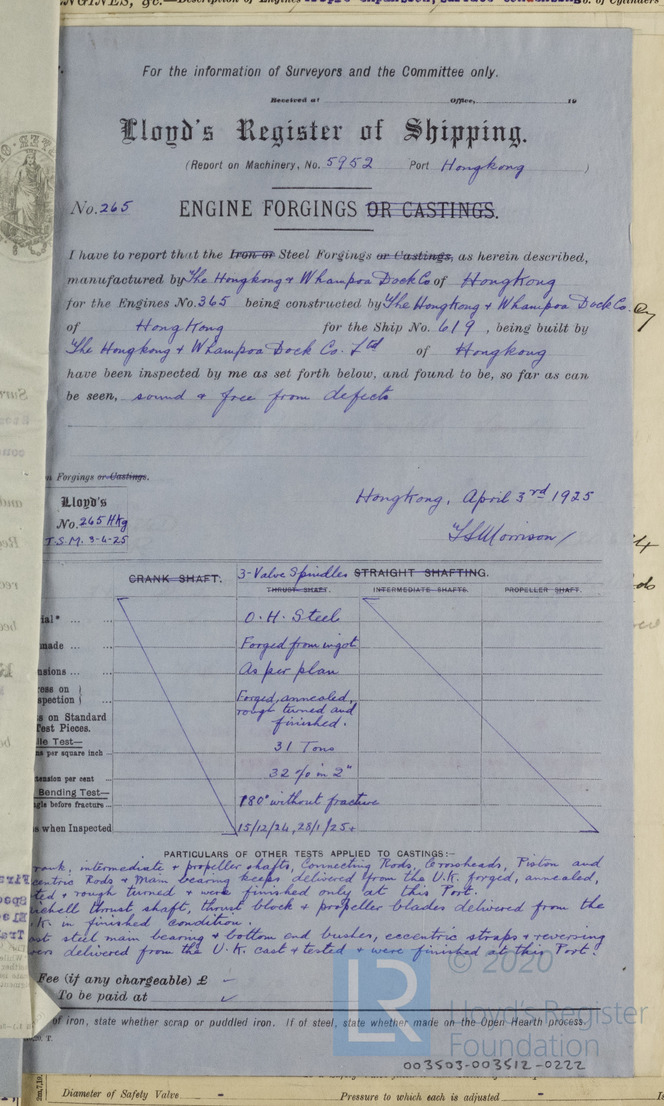 ENGINES, &c.—Description of Engines Triple expansion, surface condensing No. of Cylinders
For the information of Surveyors and the Committee only.
Received at Office, 19
Lloyd's Register of Shipping.
(Report on Machinery, No. 5952 Port Hongkong )
No. 265 ENGINE FORGINGS OR CASTINGS.
I have to report that the Iron or Steel Forgings or Castings, as herein described,
manufactured by The Hongkong & Whampoa Dock Co of Hongkong
for the Engines No. 365 being constructed by The Hongkong & Whampoa Dock Co.
of HongKong for the Ship No. 619, being built by
The Hongkong & Whampoa Dock Co. Ltd of Hongkong
have been inspected by me as set forth below, and found to be, so far as can
be seen, sound & free from defects
Forgings or Castings.
Lloyd's
No. 265 HKg
T.S.M. 3-4-25
Hongkong, April 3rd 1925
Morrison
CRANK SHAFT. 3-Valve Spindles STRAIGHT SHAFTING.
THRUST SHAFT. INTERMEDIATE SHAFTS. PROPELLER SHAFT.
ial* ... ... O.H. Steel
made ... ... Forged from ingot
nsions ... ... As per plan
ress on
spection ... Forged, annealed,
rough turned and
finished.
s on Standard
Test Pieces.
le Test—
ns per square inch 31 Tons
tension per cent ... 32 % in 2"
Bending Test—
ngle before fracture ... 180° without fracture
s when Inspected 15/12/24, 28/1/25 +
PARTICULARS OF OTHER TESTS APPLIED TO CASTINGS:—
rank, intermediate & propeller shafts, Connecting Rods, Crossheads, Piston and
centric Rods & Main bearing keeps delivered from the U.K. forged, annealed,
ted & rough turned & were finished only at this Port.
ichell thrust shaft, thrust block & propeller blades delivered from the
.K. in finished condition.
ast steel main bearing & bottom end bushes, eccentric straps & reversing
vers delivered from the U.K. cast & tested & were finished at this Port.
Fee (if any chargeable) £
To be paid at
of iron, state whether scrap or puddled iron. If of steel, state whether made on the Open Hearth process.
© 2020
LR Lloyd's Register
Foundation
003503-003512-0222
Diameter of Safety Valve Pressure to which each is adjusted